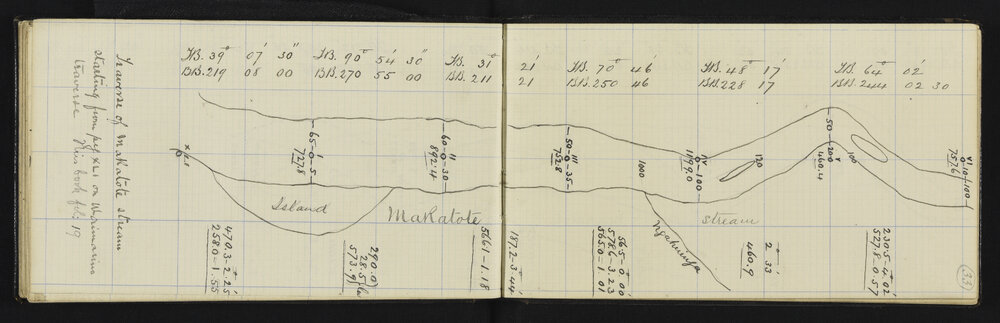 Traverse of Makatote stream
starting from peg XLI on Waimarino
traverse This book fol: 19
FB. 39° 07' 30"
BB. 219 08 00
FB. 90° 54' 30"
BB. 270 55 00
FB. 31° 21'
BB. 211 21
FB. 70° 46
BB. 250 46
FB. 48° 17'
BB. 228 17
FB. 64° 02'
BB. 244 02 30
65-0-5
I
727.8
60-0-30
II
892.4
50-0-35
III
752.8
1000
IV
0-100
1179.0
120
50
200
V
460.4
100
VI
10-100
757.6
Island
Makatote
stream
Ngahuinga
470.3-2°25'
258.0-1.55
290.0
28.5
573.9
566.1-1.18
187.2-3°44'
565-0°00'
578.6-3.23
565.0-1.01
2°33'
460.9
230.5-4°02'
527.8-0.57
33